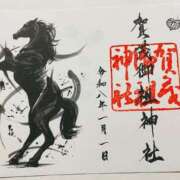 賀茂御祖神社
賀茂
神社
令和八年一月一日